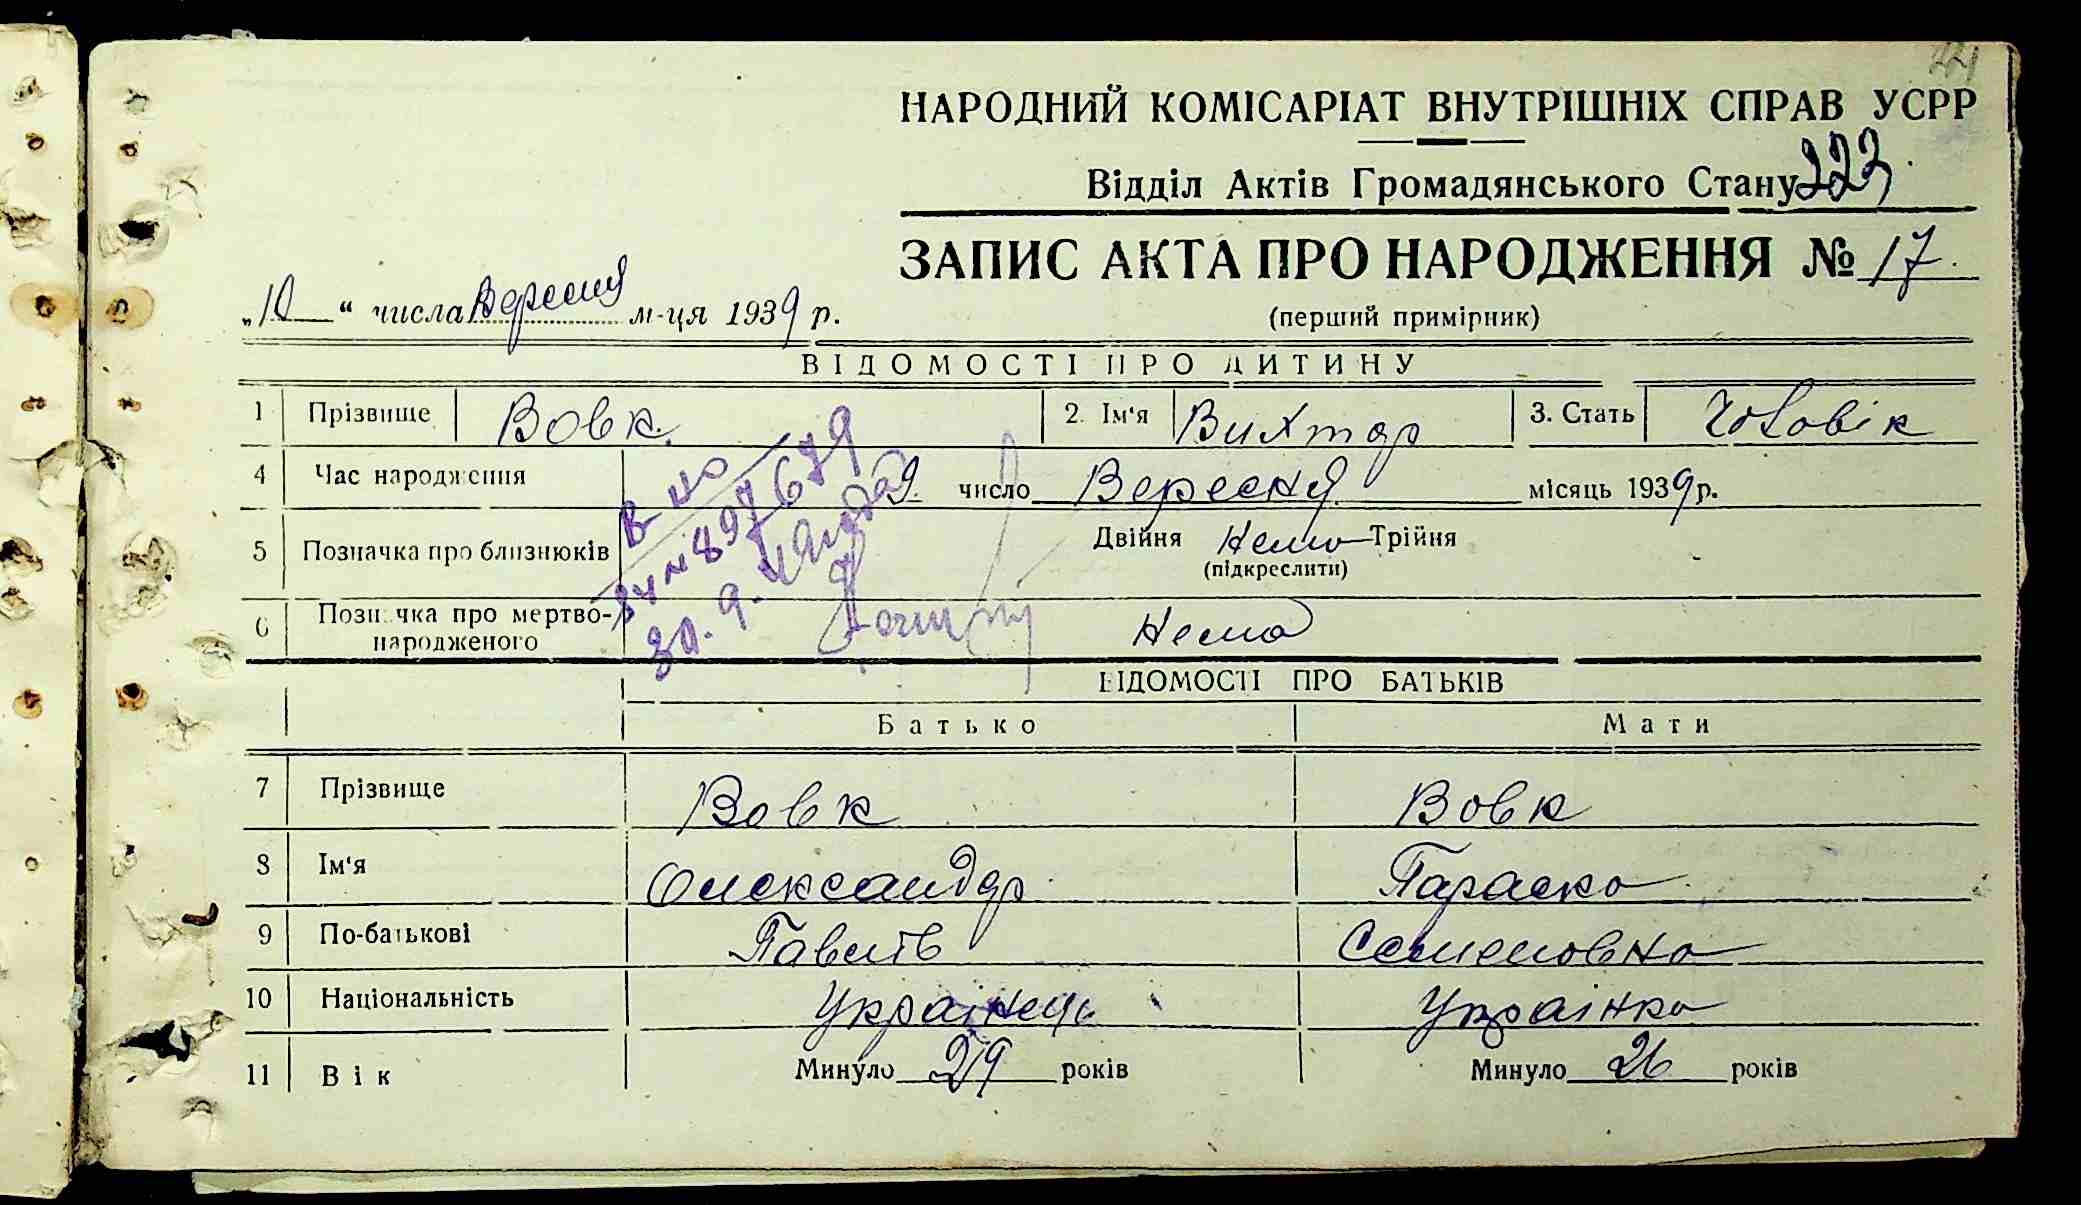 НАРОДНИЙ КОМІСАРІАТ ВНУТРІШНІХ СПРАВ УСРР
Відділ Актів Громадянського Стану 223
ЗАПИС АКТА ПРО НАРОДЖЕННЯ № 17.
„10“ числа Вересня м-ця 1939 р.
(перший примірник)
ВІДОМОСТІ ПРО ДИТИНУ
1 Прізвище Вовк. 2. Ім'я Вихтор 3. Стать Чоловік
4 Час народження 9. число Вересня місяць 1939 р.
5 Позначка про близнюків Двійня Нема Трійня
(підкреслити)
6 Позначка про мертво-
народженого Нема
ВІДОМОСТІ ПРО БАТЬКІВ
Батько Мати
7 Прізвище Вовк Вовк
8 Ім'я Олександр Параска
9 По-батькові Семеновна
10 Національність Українець Українка
11 Вік Минуло 29 років Минуло 26 років